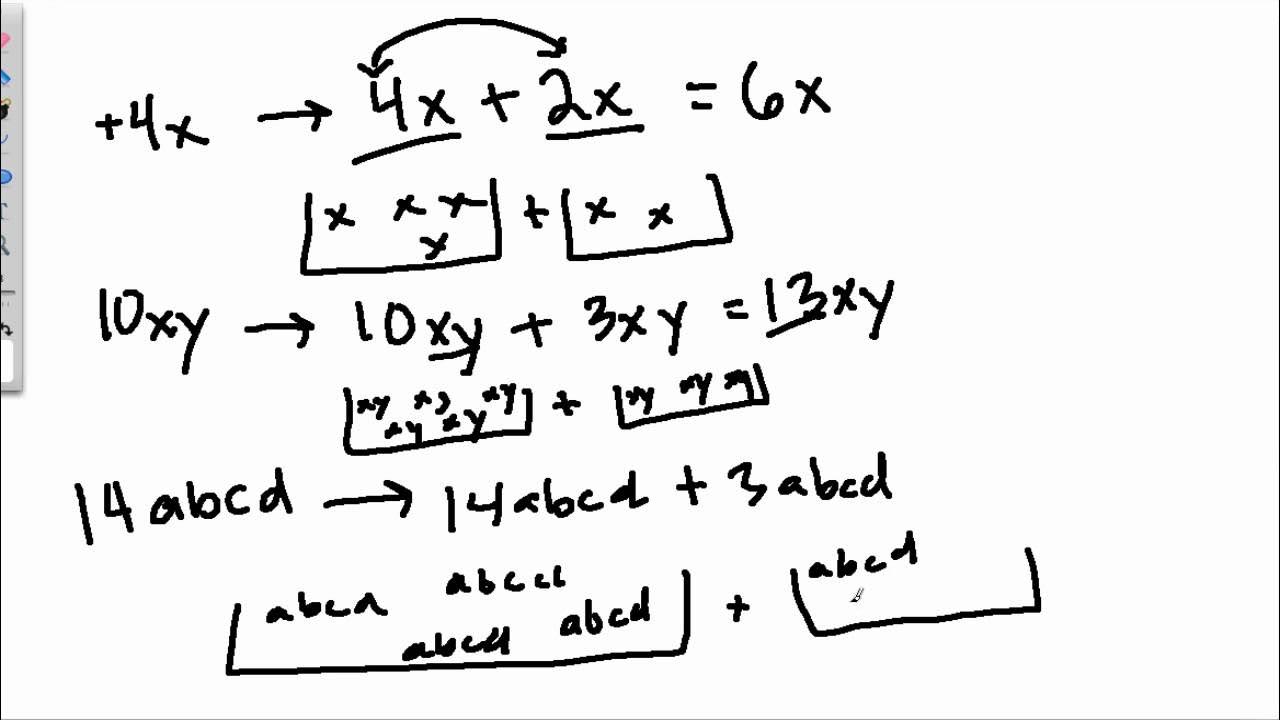 +4x → 4x + 2x = 6x
x x x x + x x
10xy → 10xy + 3xy = 13xy
xy xy xy xy xy + xy xy xy
14abcd → 14abcd + 3abcd
abcd abcd abcd abcd + abcd